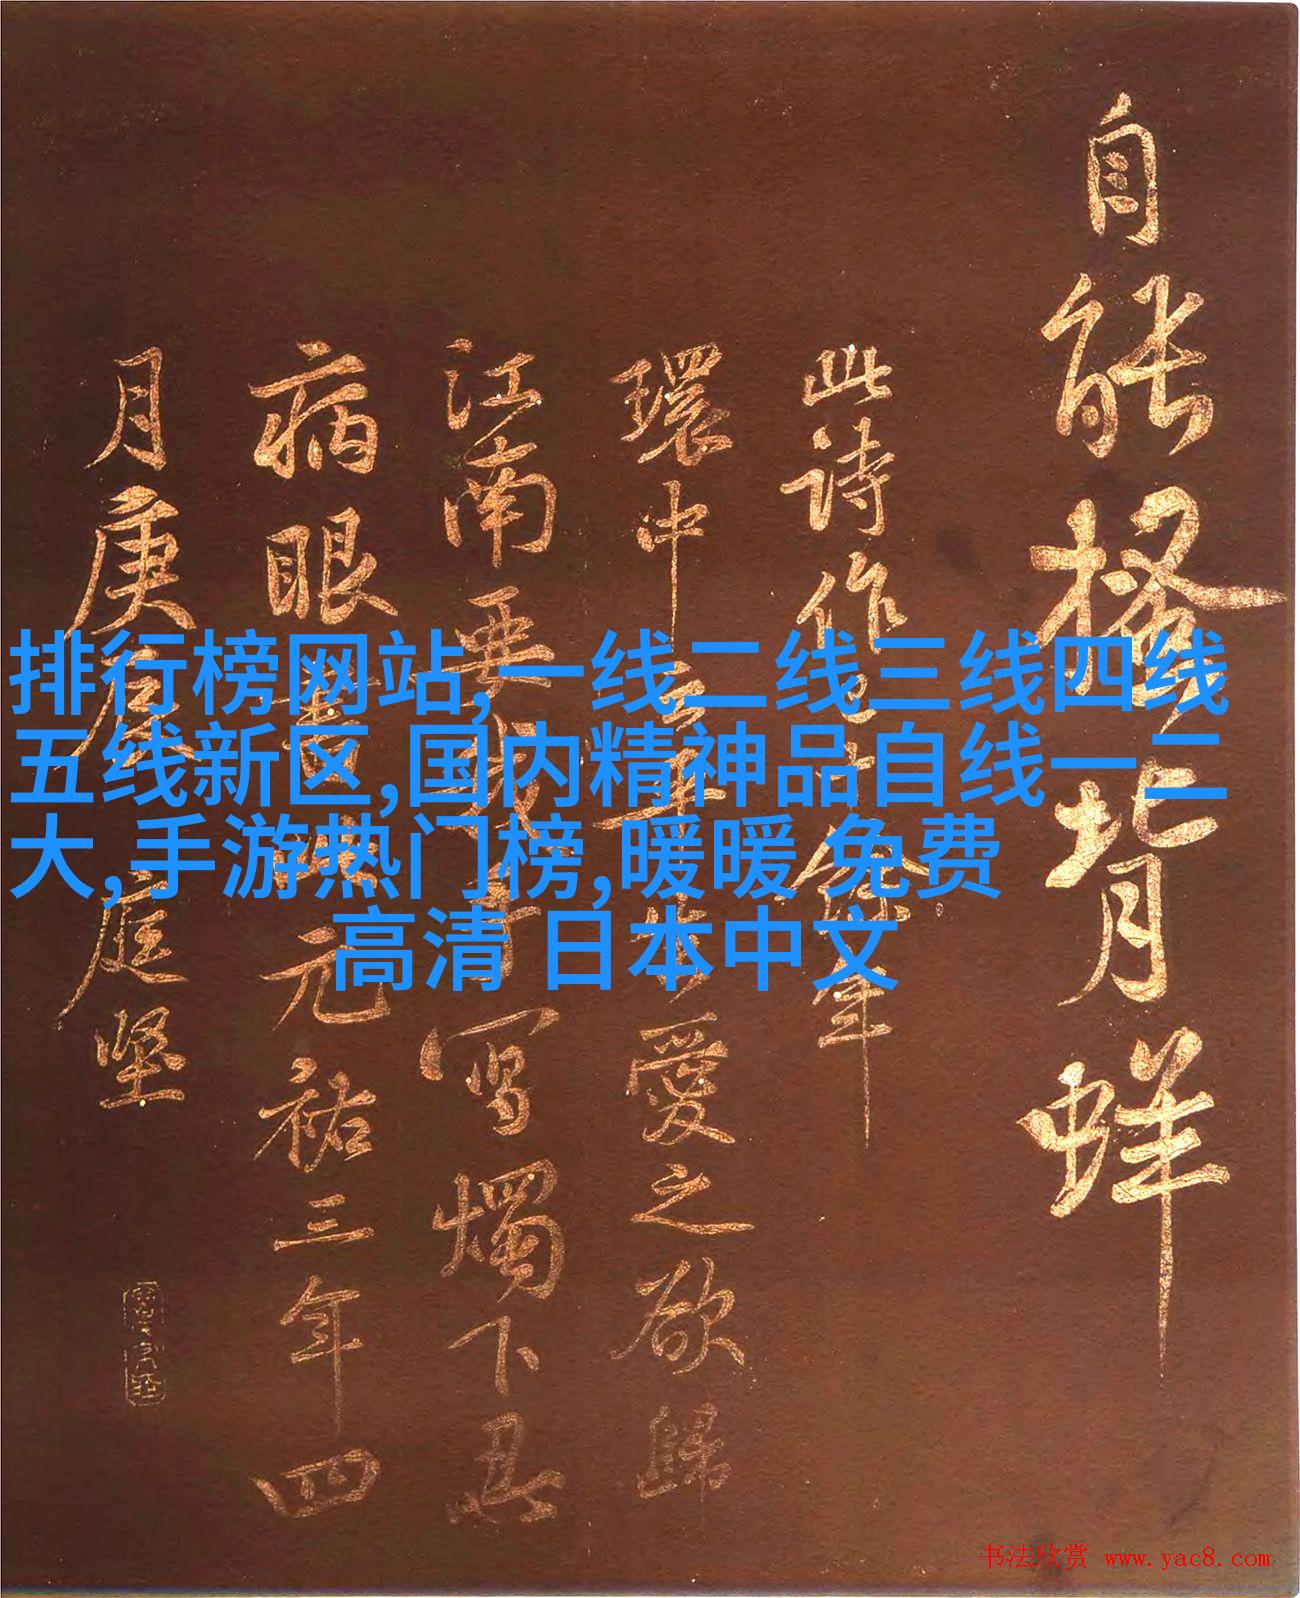 自能搔背蛘
此诗作
環中
愛之欲歸
江南
寫燭下忍
病眼書
元祐三年四
月庚辰
庭堅
排行榜网站,一线二线三线四线
五线新区,国内精神品自线一二
大,手游热门榜,暖暖 免费
高清 日本中文
书法欣赏 www.yac8.com